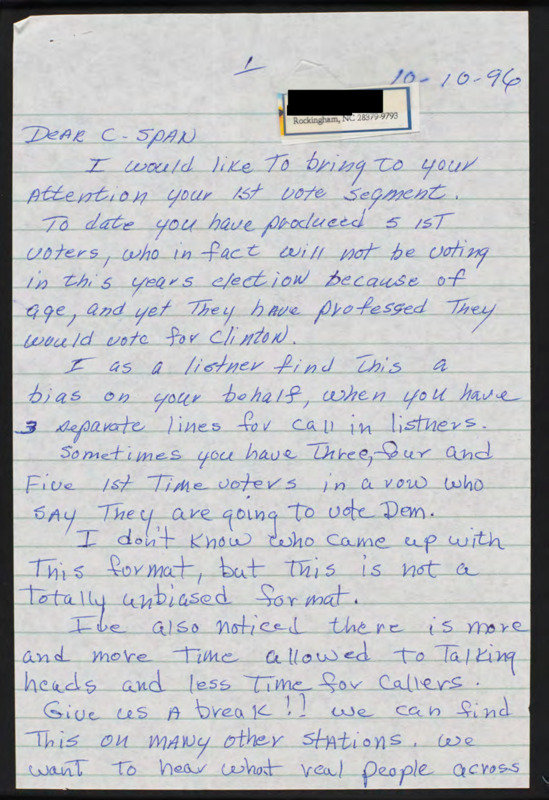 1
10-10-96
Rockingham, NC 28379-9793
DEAR C-SPAN
I would like To bring to your
Attention your 1st vote segment.
To date you have produced 5 1ST
voters, who in fact will not be voting
in this years election because of
age, and yet They have professed They
would vote for Clinton.
I as a listner find This a
bias on your behalf, when you have
3 separate lines for call in listners.
Sometimes you have Three, four and
Five 1st Time voters in a row who
SAY They are going to vote Dem.
I don't know who came up with
This format, but This is not a
Totally unbiased format.
I've also noticed there is more
and more Time allowed to Talking
heads and less Time for Callers.
Give us A break!! we can find
This on MANY other stations. we
want To hear what real people across